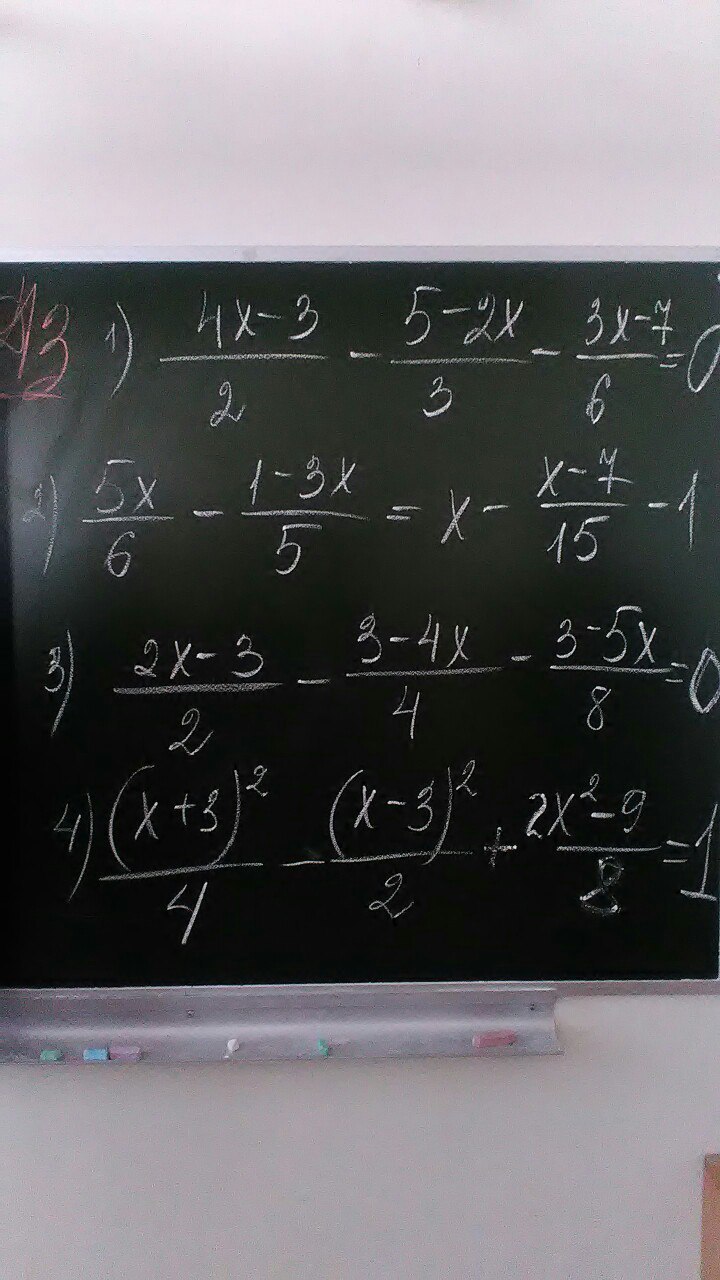 ДЗ 1) (4x-3)/2 - (5-2x)/3 - (3x-7)/6 = 0
2) 5x/6 - (1-3x)/5 = x - (x-7)/15 - 1
3) (2x-3)/2 - (3-4x)/4 - (3-5x)/8 = 0
4) (x+3)²/4 - (x-3)²/2 + (2x²-9)/8 = 1